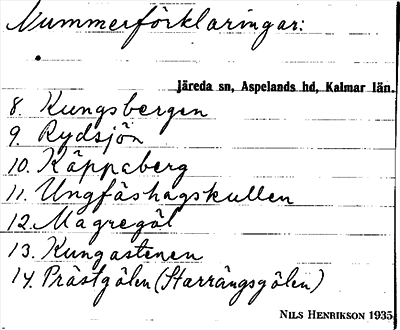 Nummerförklaringar:
Järeda sn, Aspelands hd, Kalmar län.
8. Kungsbergen
9. Rydsjön
10. Käppaberg
11. Ungfäshagskullen
12. Magregöl
13. Kungastenen
14. Prästgölen (Starrängsgölen)
NILS HENRIKSON 1935